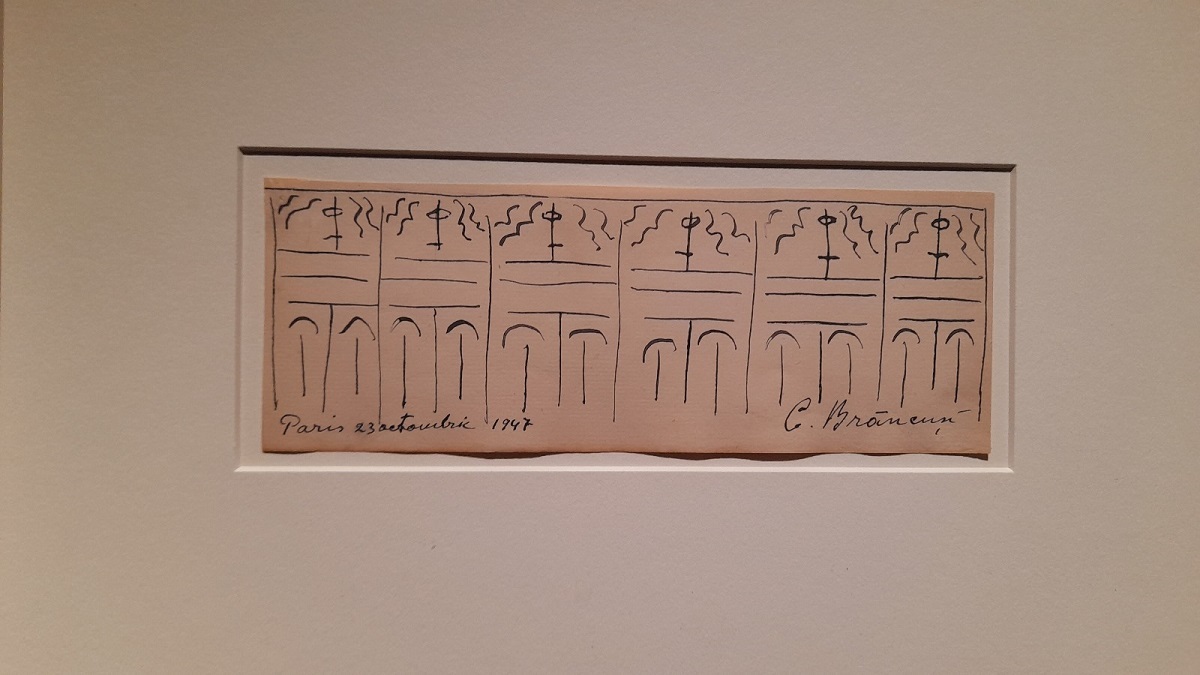 Paris 23 octombrie 1947
C. Brâncuși